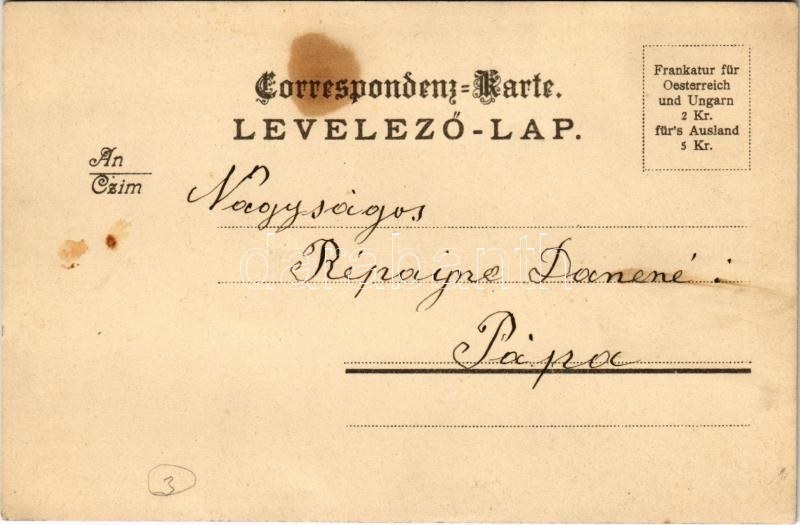 Correspondenz-Karte.
LEVELEZŐ-LAP.
Frankatur für
Oesterreich
und Ungarn
2 Kr.
für's Ausland
5 Kr.
An
Czim
Nagyságos
Répainé Danené :
Pápa
darabanth
3